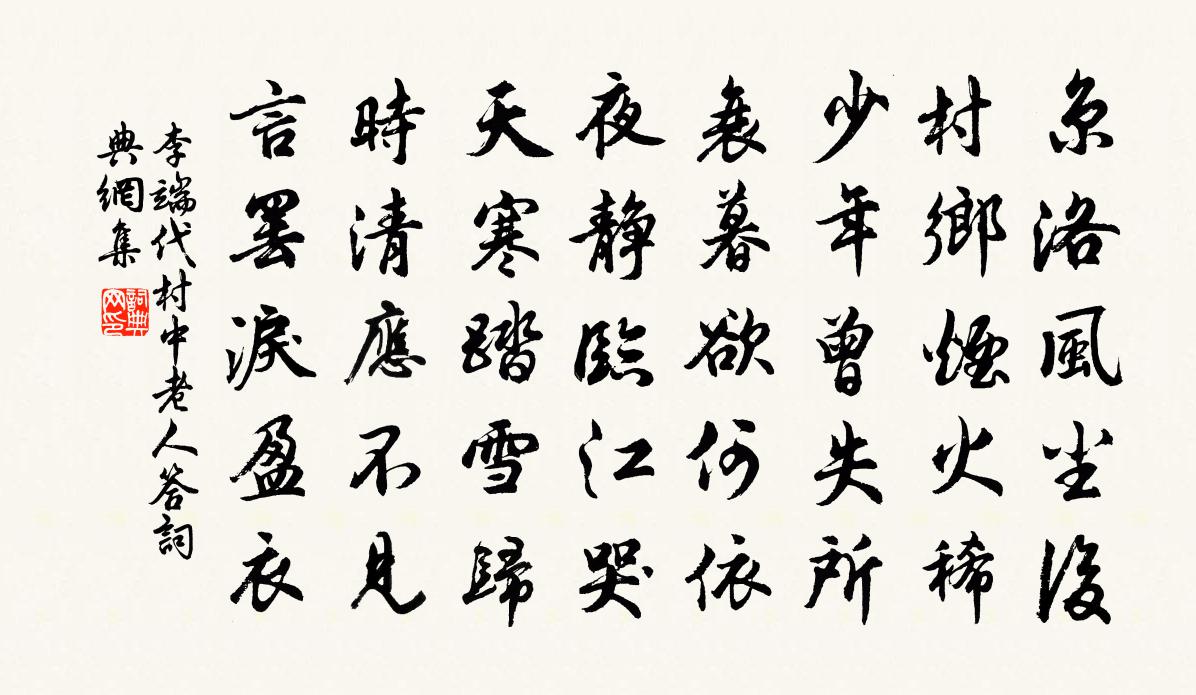 京洛風塵後
村鄉煙火稀
少年曾失所
衰暮欲何依
夜靜臨江哭
天寒踏雪歸
時清應不見
言罷淚盈衣
李端代村中老人答詞
典網集
詞典網印